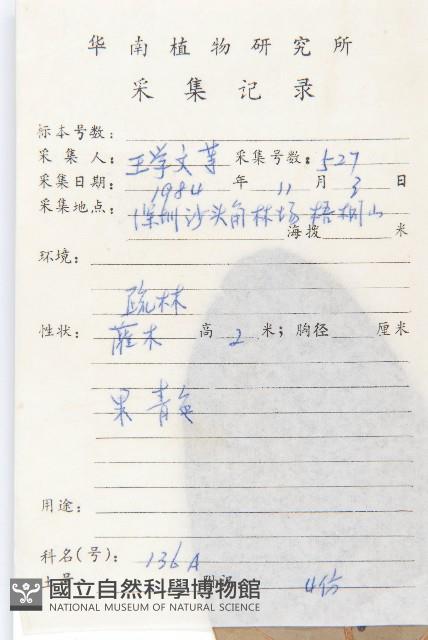 华南植物研究所
采集记录
标本号数：
采集人：王学文等 采集号数：527
采集日期：1984年11月3日
采集地点：深圳沙头角林场梧桐山
海拨 米
环境：
疏林
性状：灌木 高2米；胸径 厘米
果青色
用途：
科名(号)：136A
4份
國立自然科學博物館
NATIONAL MUSEUM OF NATURAL SCIENCE